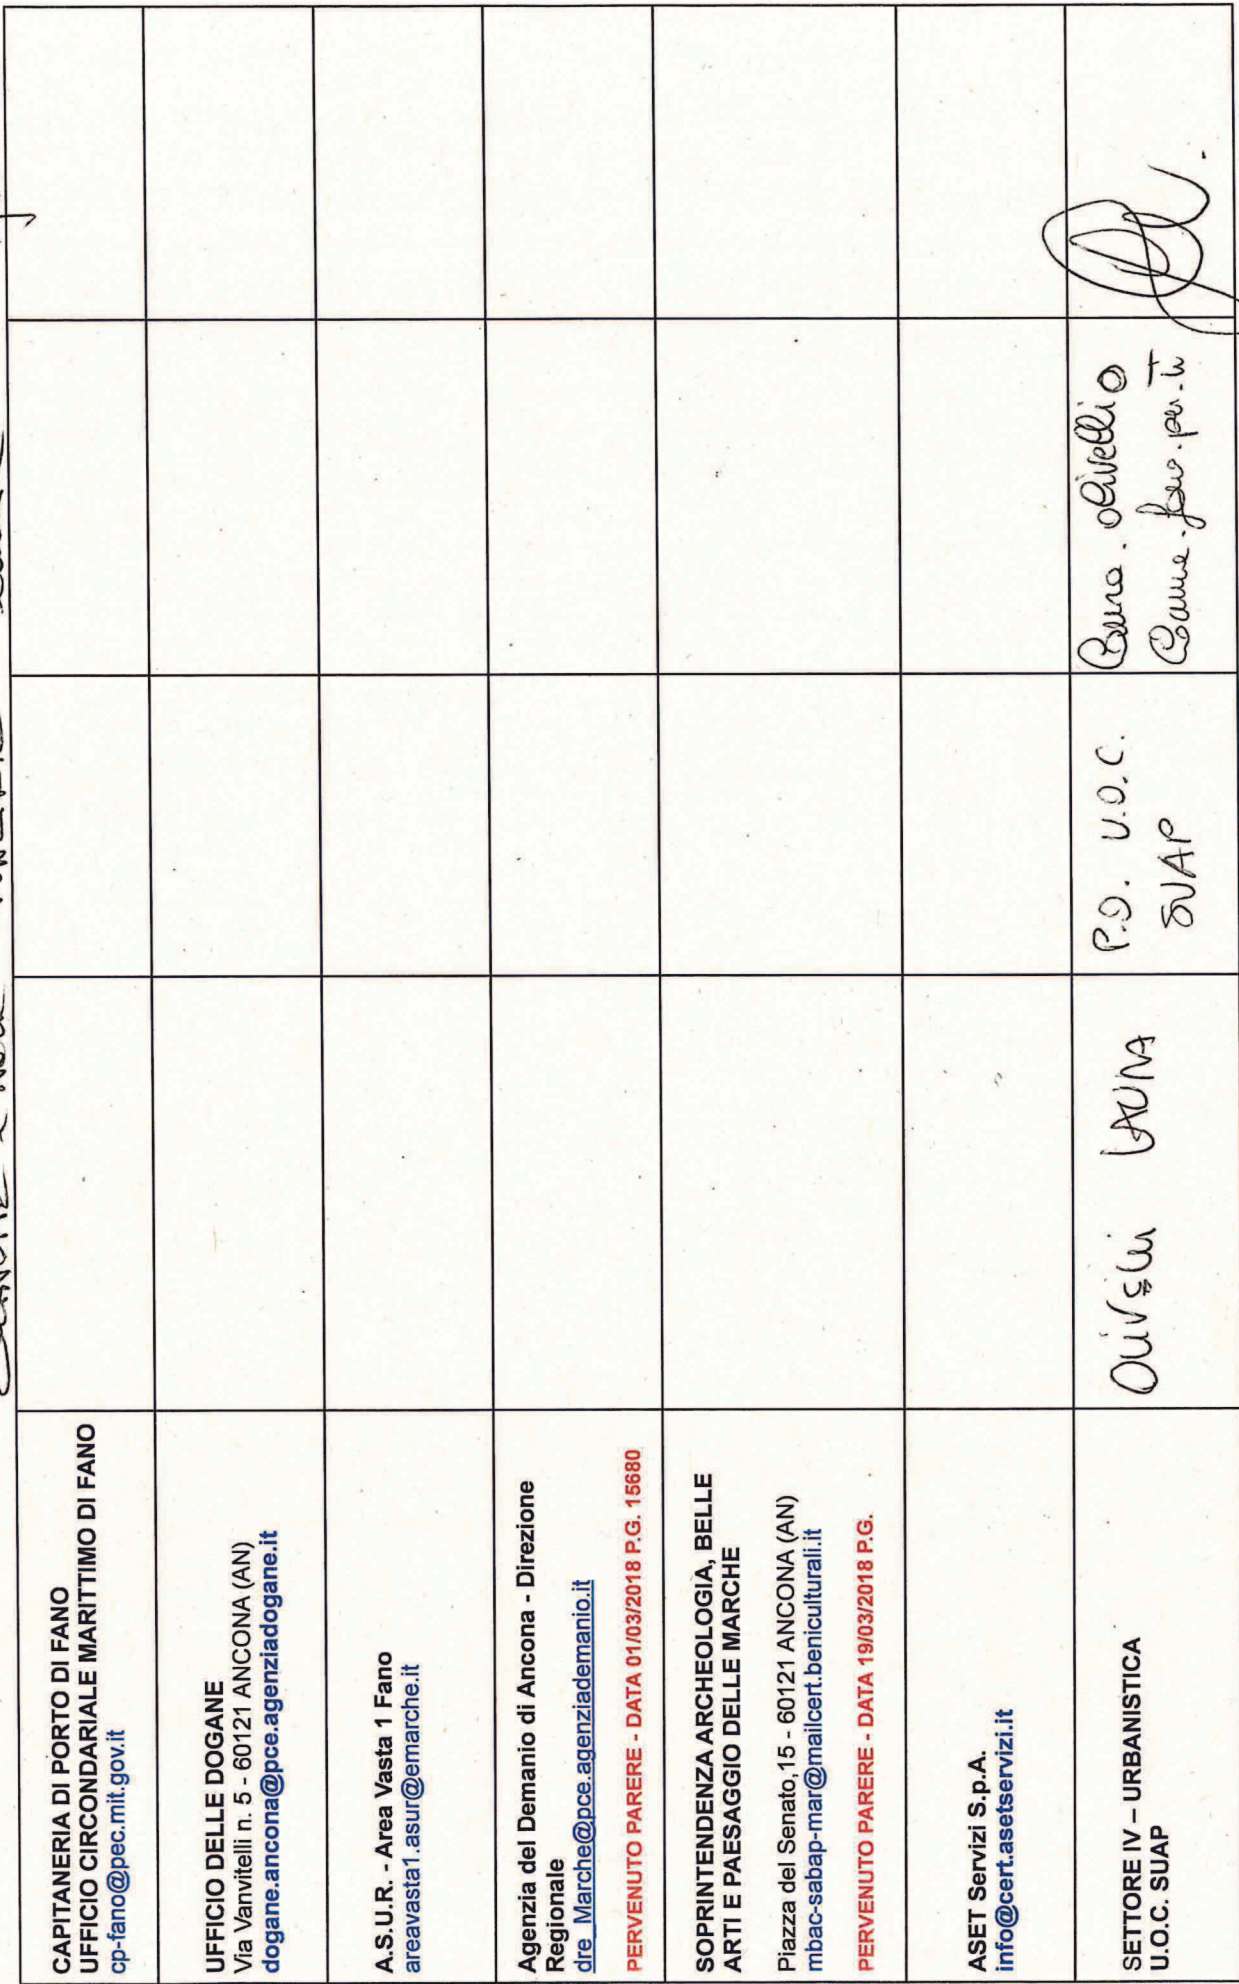 CAPITANERIA DI PORTO DI FANO
UFFICIO CIRCONDARIALE MARITTIMO DI FANO
cp-fano@pec.mit.gov.it
UFFICIO DELLE DOGANE
Via Vanvitelli n. 5 - 60121 ANCONA (AN)
dogane.ancona@pce.agenziadogane.it
A.S.U.R. - Area Vasta 1 Fano
areavasta1.asur@emarche.it
Agenzia del Demanio di Ancona - Direzione
Regionale
dre_Marche@pce.agenziademanio.it
PERVENUTO PARERE - DATA 01/03/2018 P.G. 15680
SOPRINTENDENZA ARCHEOLOGIA, BELLE
ARTI E PAESAGGIO DELLE MARCHE
Piazza del Senato,15 - 60121 ANCONA (AN)
mbac-sabap-mar@mailcert.beniculturali.it
PERVENUTO PARERE - DATA 19/03/2018 P.G.
ASET Servizi S.p.A.
info@cert.asetservizi.it
SETTORE IV – URBANISTICA
U.O.C. SUAP
OLIVELLI LAURA
P.O. U.O.C.
SUAP